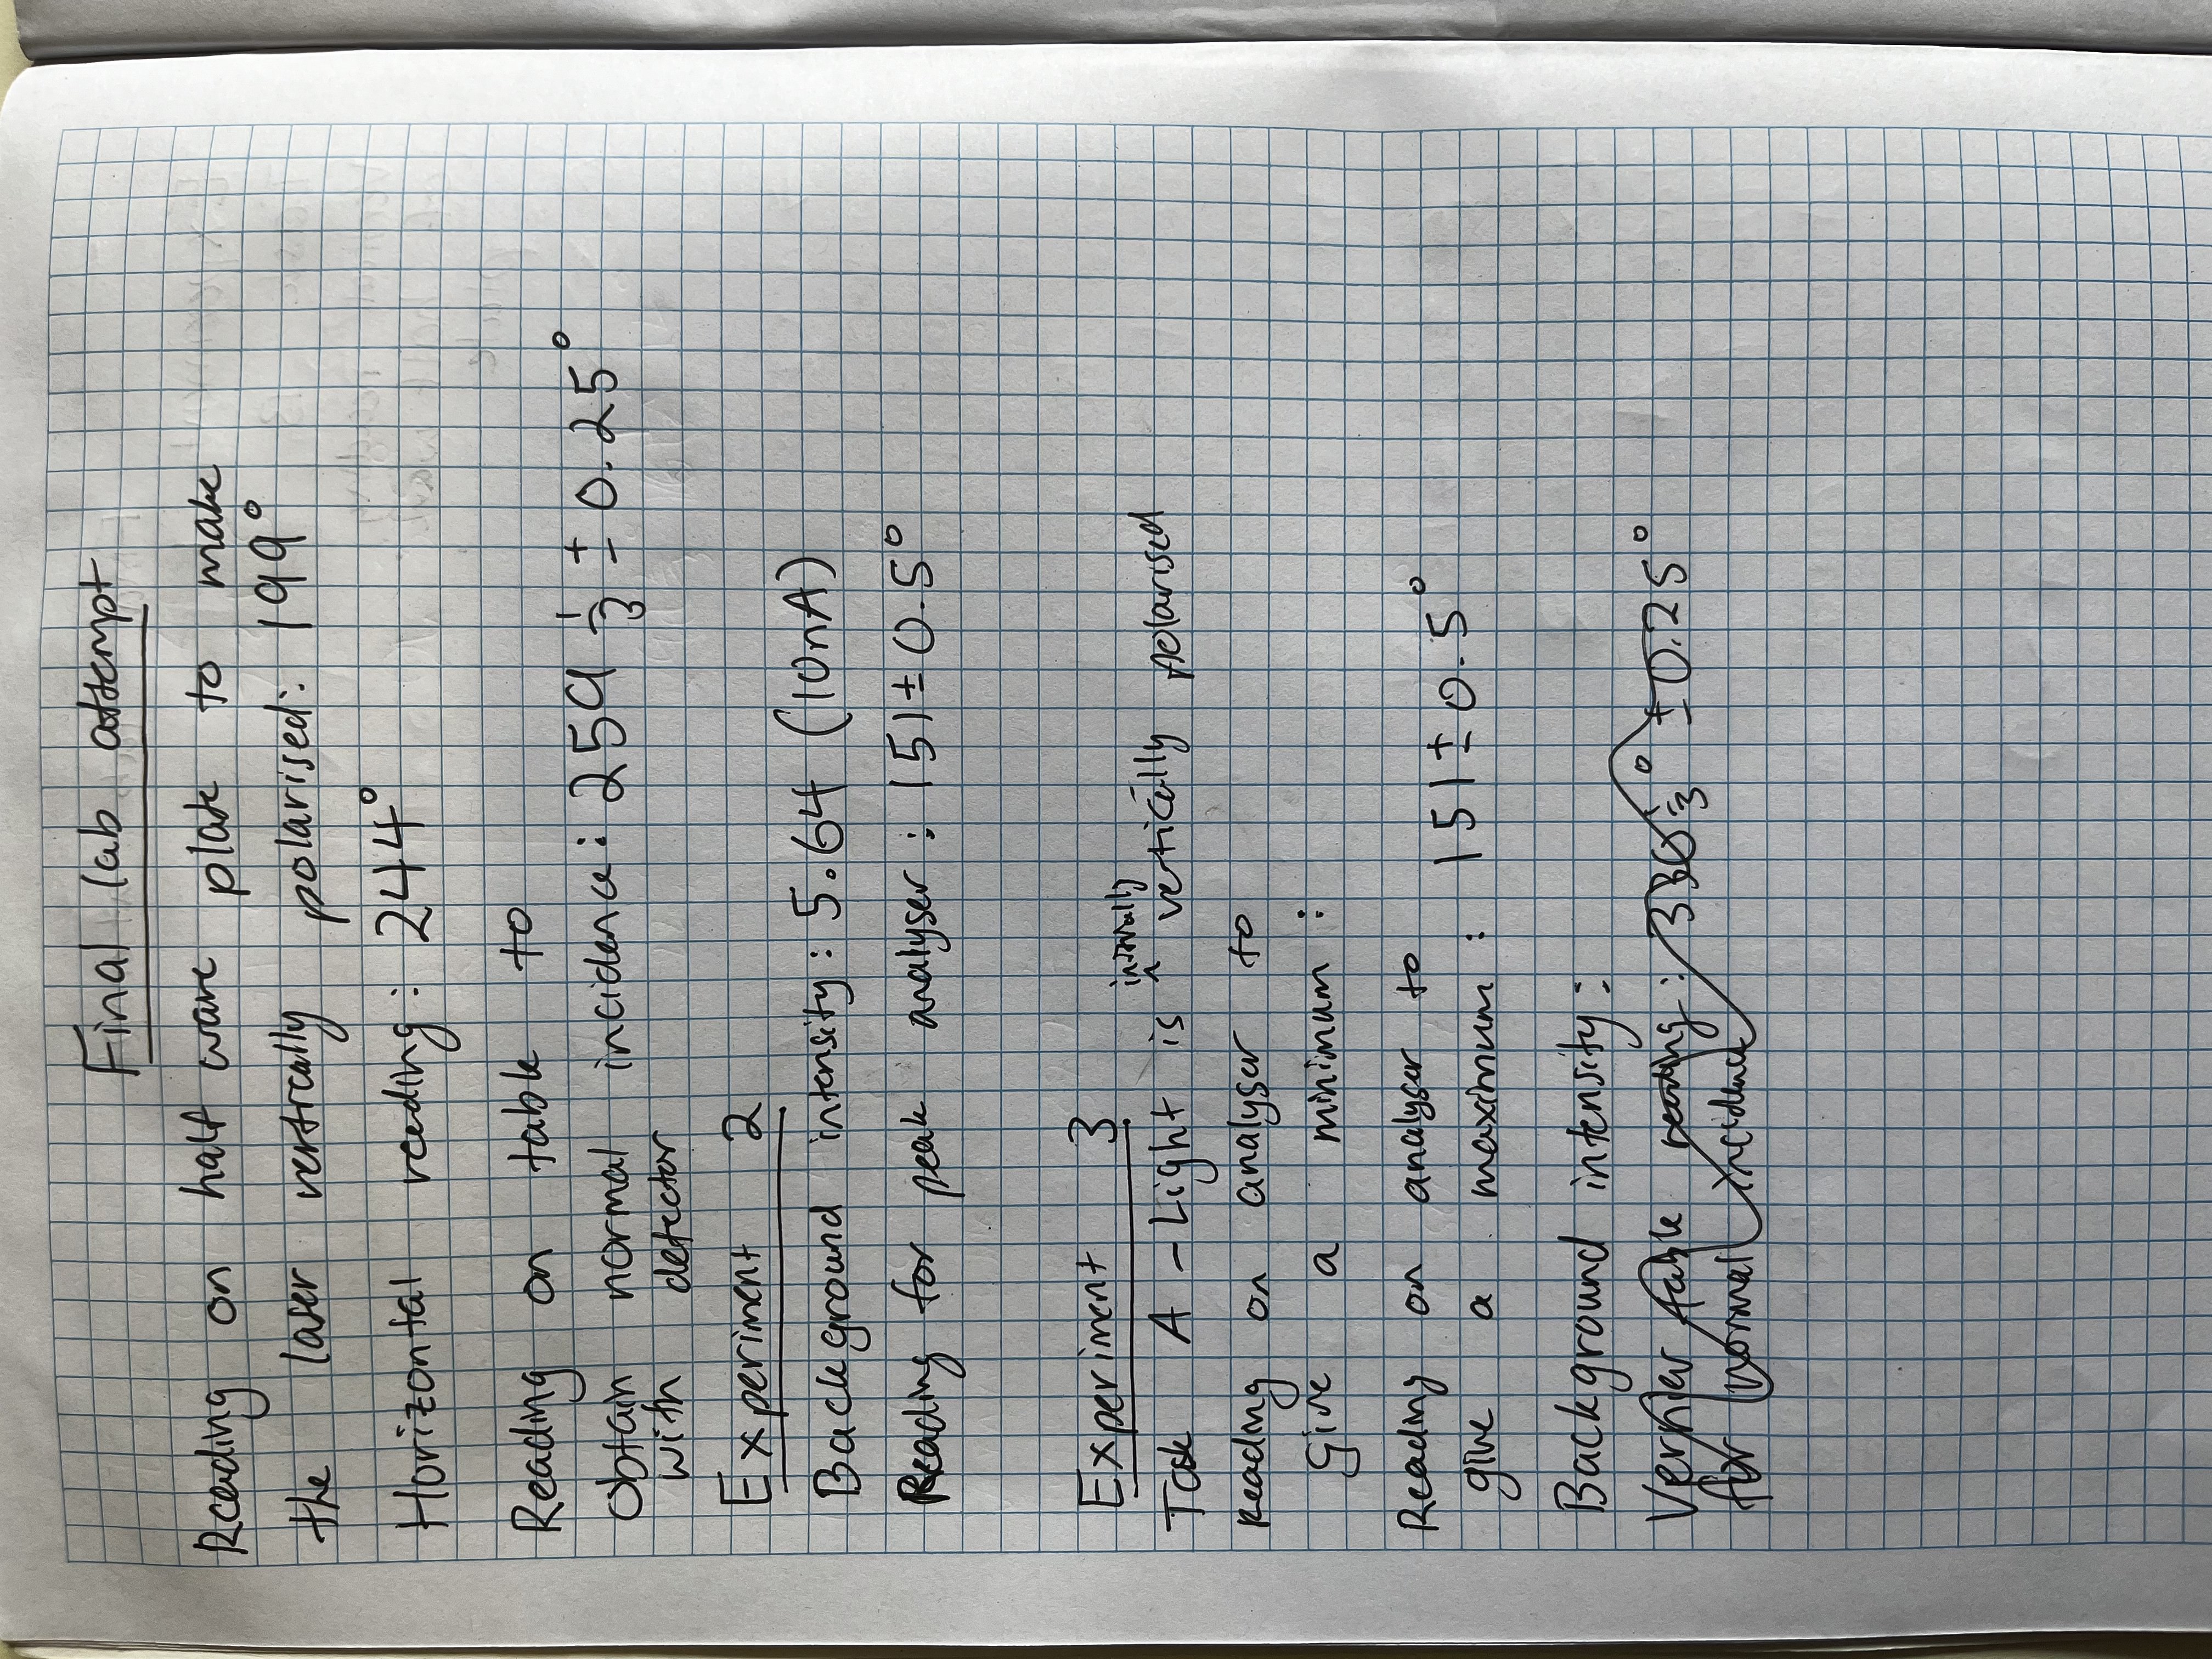 Final lab attempt
Reading on half wave plate to make
the laser vertically polarised: 199°
Horizontal reading: 244°
Reading on table to
obtain normal incidence: 259 1/3 ± 0.25°
with detector
Experiment 2
Background intensity: 5.64 (10nA)
Reading for peak analyser: 151 ± 0.5°
Experiment 3
initially
Task A - Light is ^ vertically polarised
Reading on analyser to
give a minimum:
Reading on analyser to
give a maximum: 151 ± 0.5°
Background intensity:
Vernier table reading: 330 1/3° ± 0.25°
for normal incidence